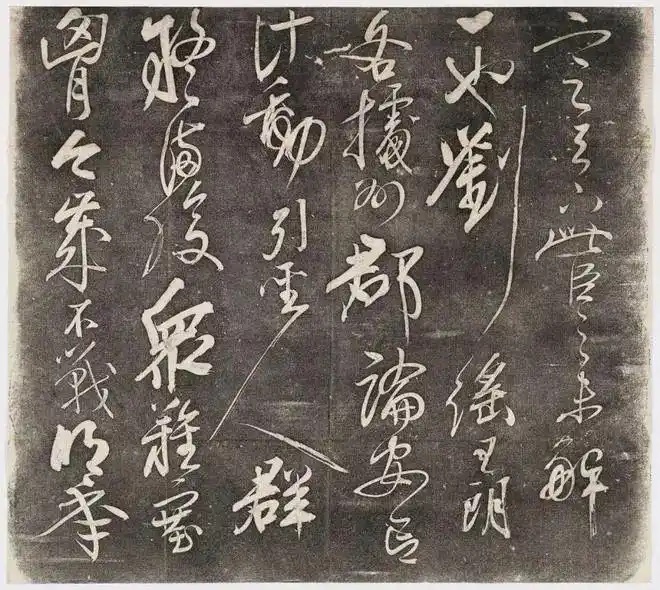 定天下此臣之未解
一也劉繇王朗
各據州郡論安言
計動引聖人群
疑滿腹衆難塞
胷今歲不戰明年